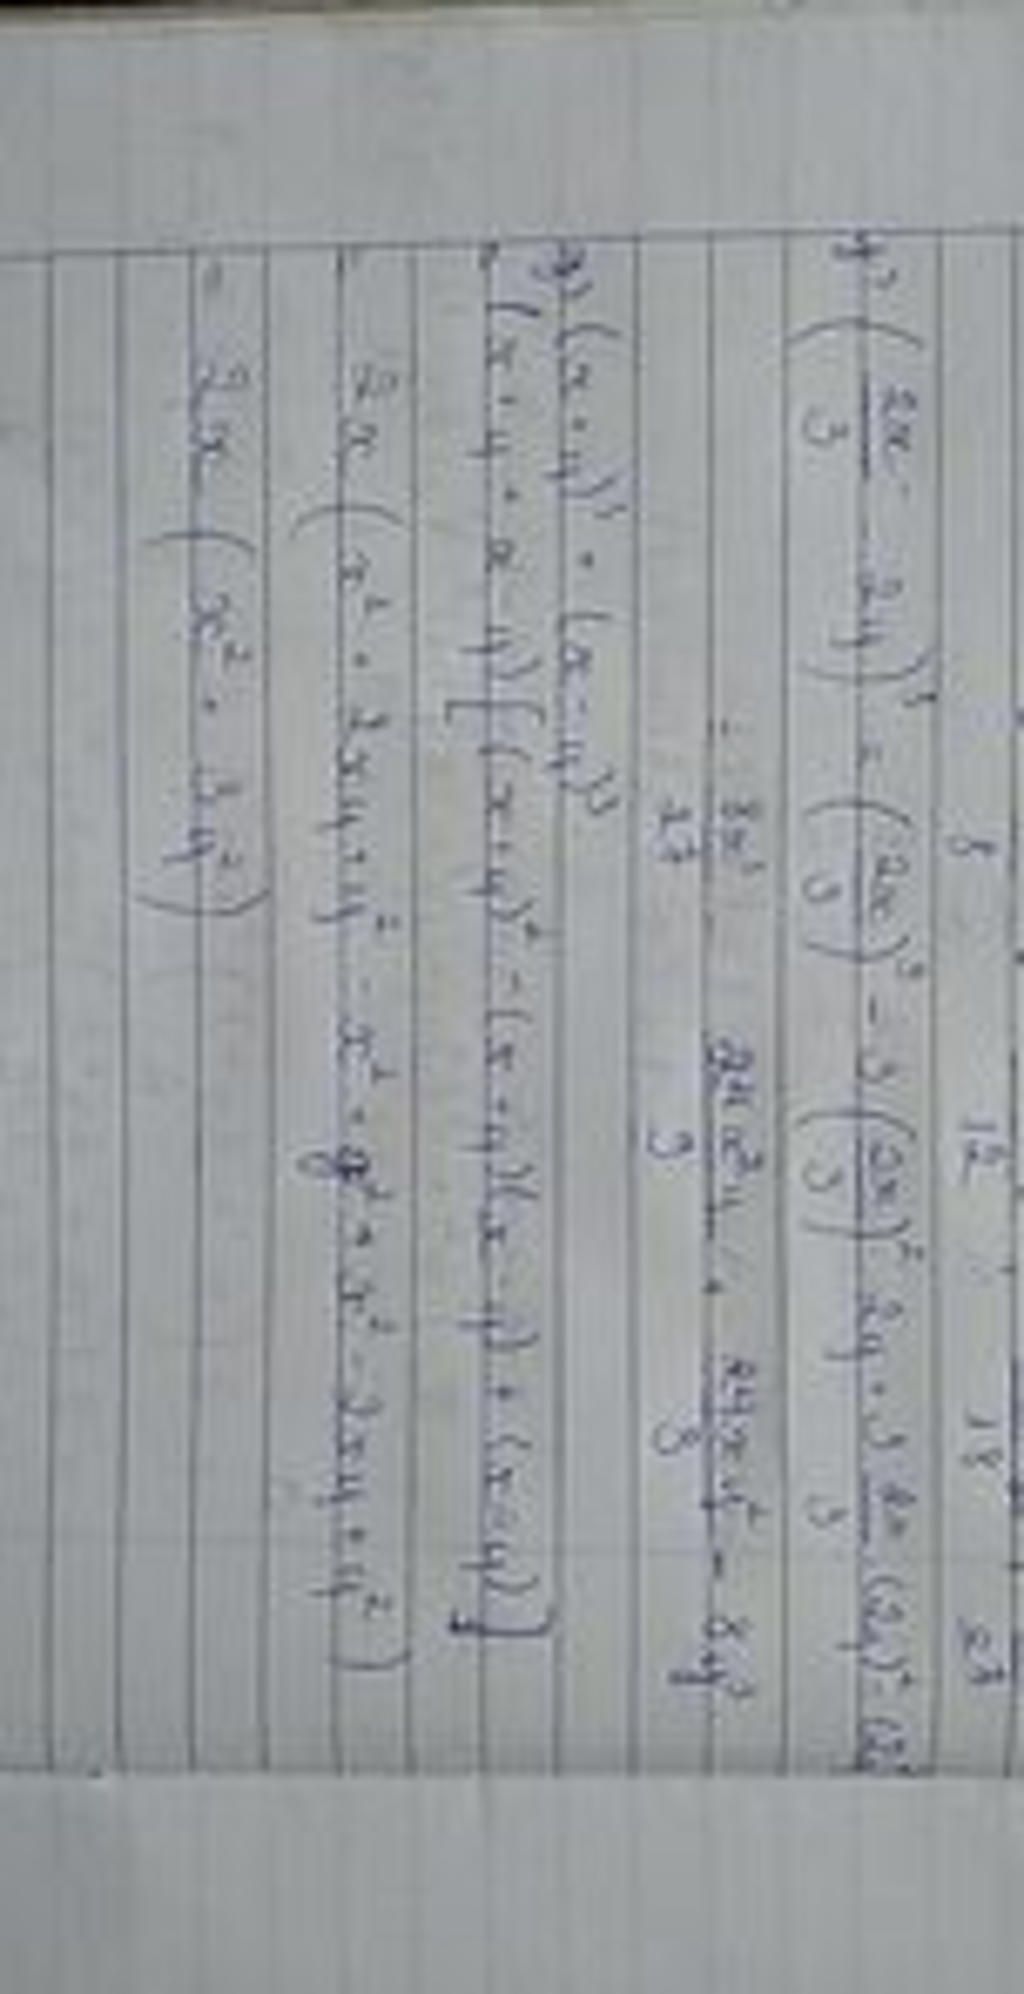 8 12 18 27
y) (2x/3 - 2y)³ = (2x/3)³ - 3 (2x/3)² 2y + 3 2x/3 (2y)² - (2y)³
= 8x³/27 24x²y/3 + 24xy²/3 - 8y³
(x+y)³ + (x-y)³
(x+y+x-y) [(x+y)² - (x+y)(x-y) + (x-y)]
= 2x (x² + 2xy + y² - x² + y² + x² - 2xy + y²)
= 2x (x² + 3y²)